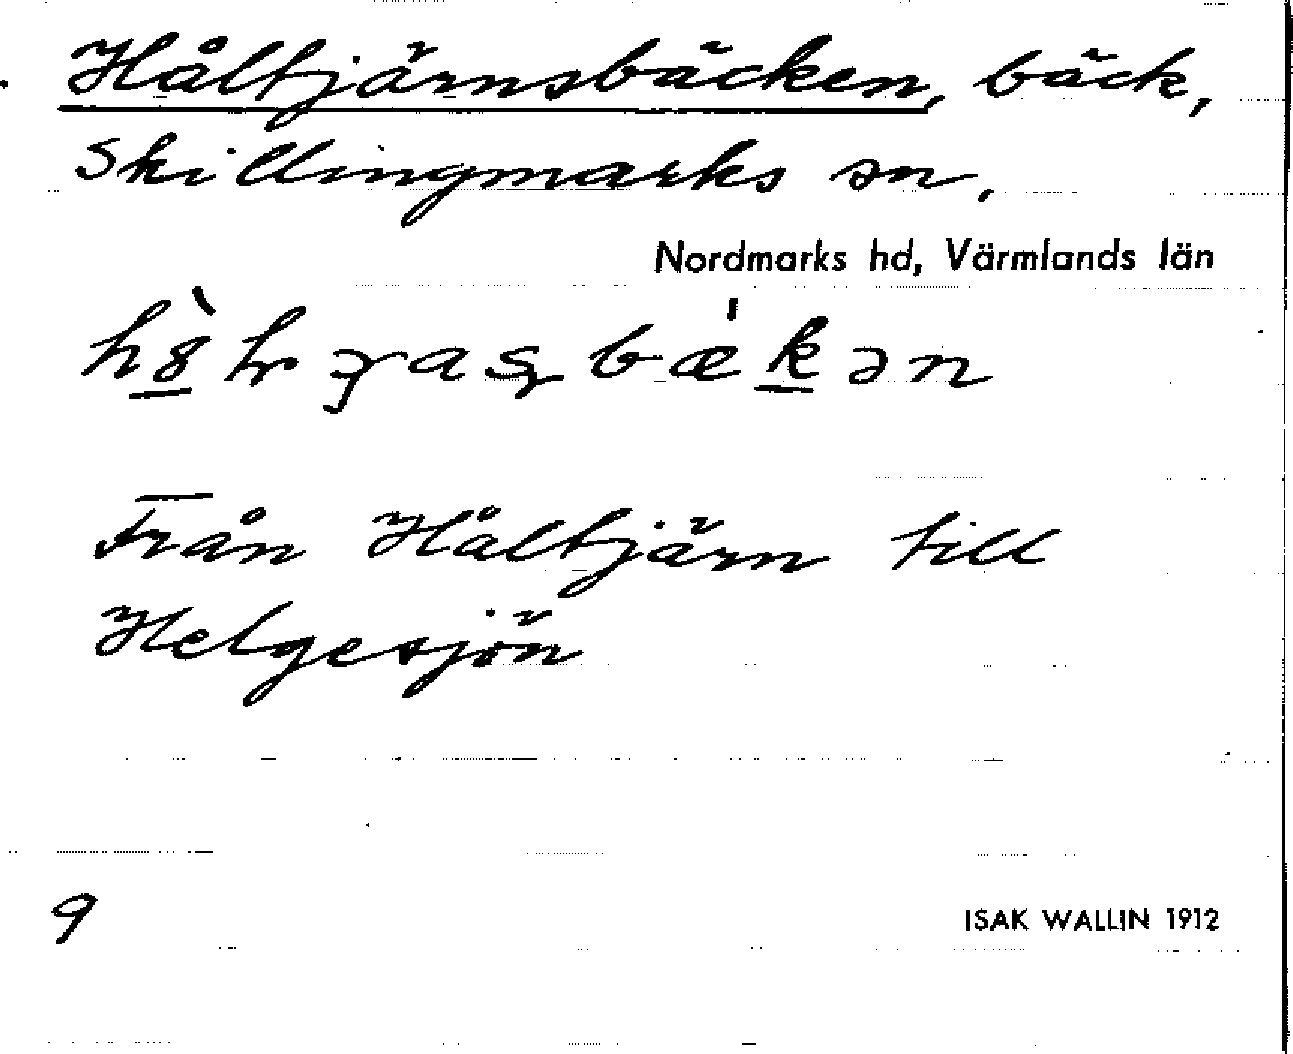 Håltjärnsbäcken, bäck,
Skillingmarks sn.
Nordmarks hd, Värmlands län
Från Håltjärn till
Helgesjön
9
ISAK WALLIN 1912